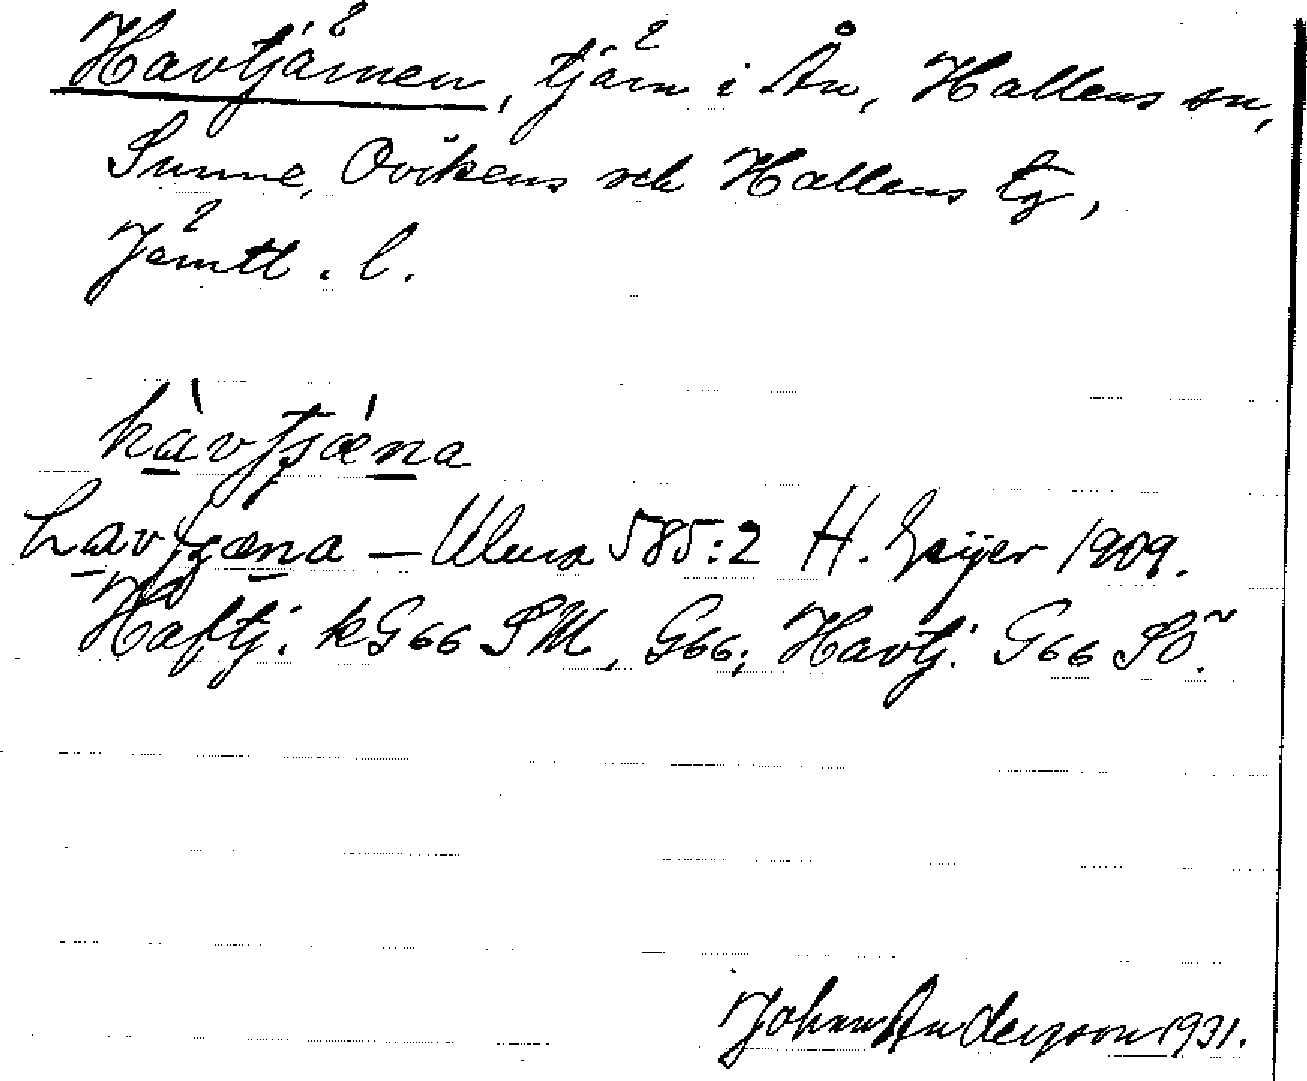 Havtjärnen, tjärn i Ån, Hallens sn,
Sunne, Ovikens och Hallens tg,
Jämtl. l.
hàvtjæ̀na
havtjæna — Uluna 585:2 H. Geijer 1909.
Haftj. kG66 SM, G66; Havtj. G66 SÖ.
John Andersson 1931.